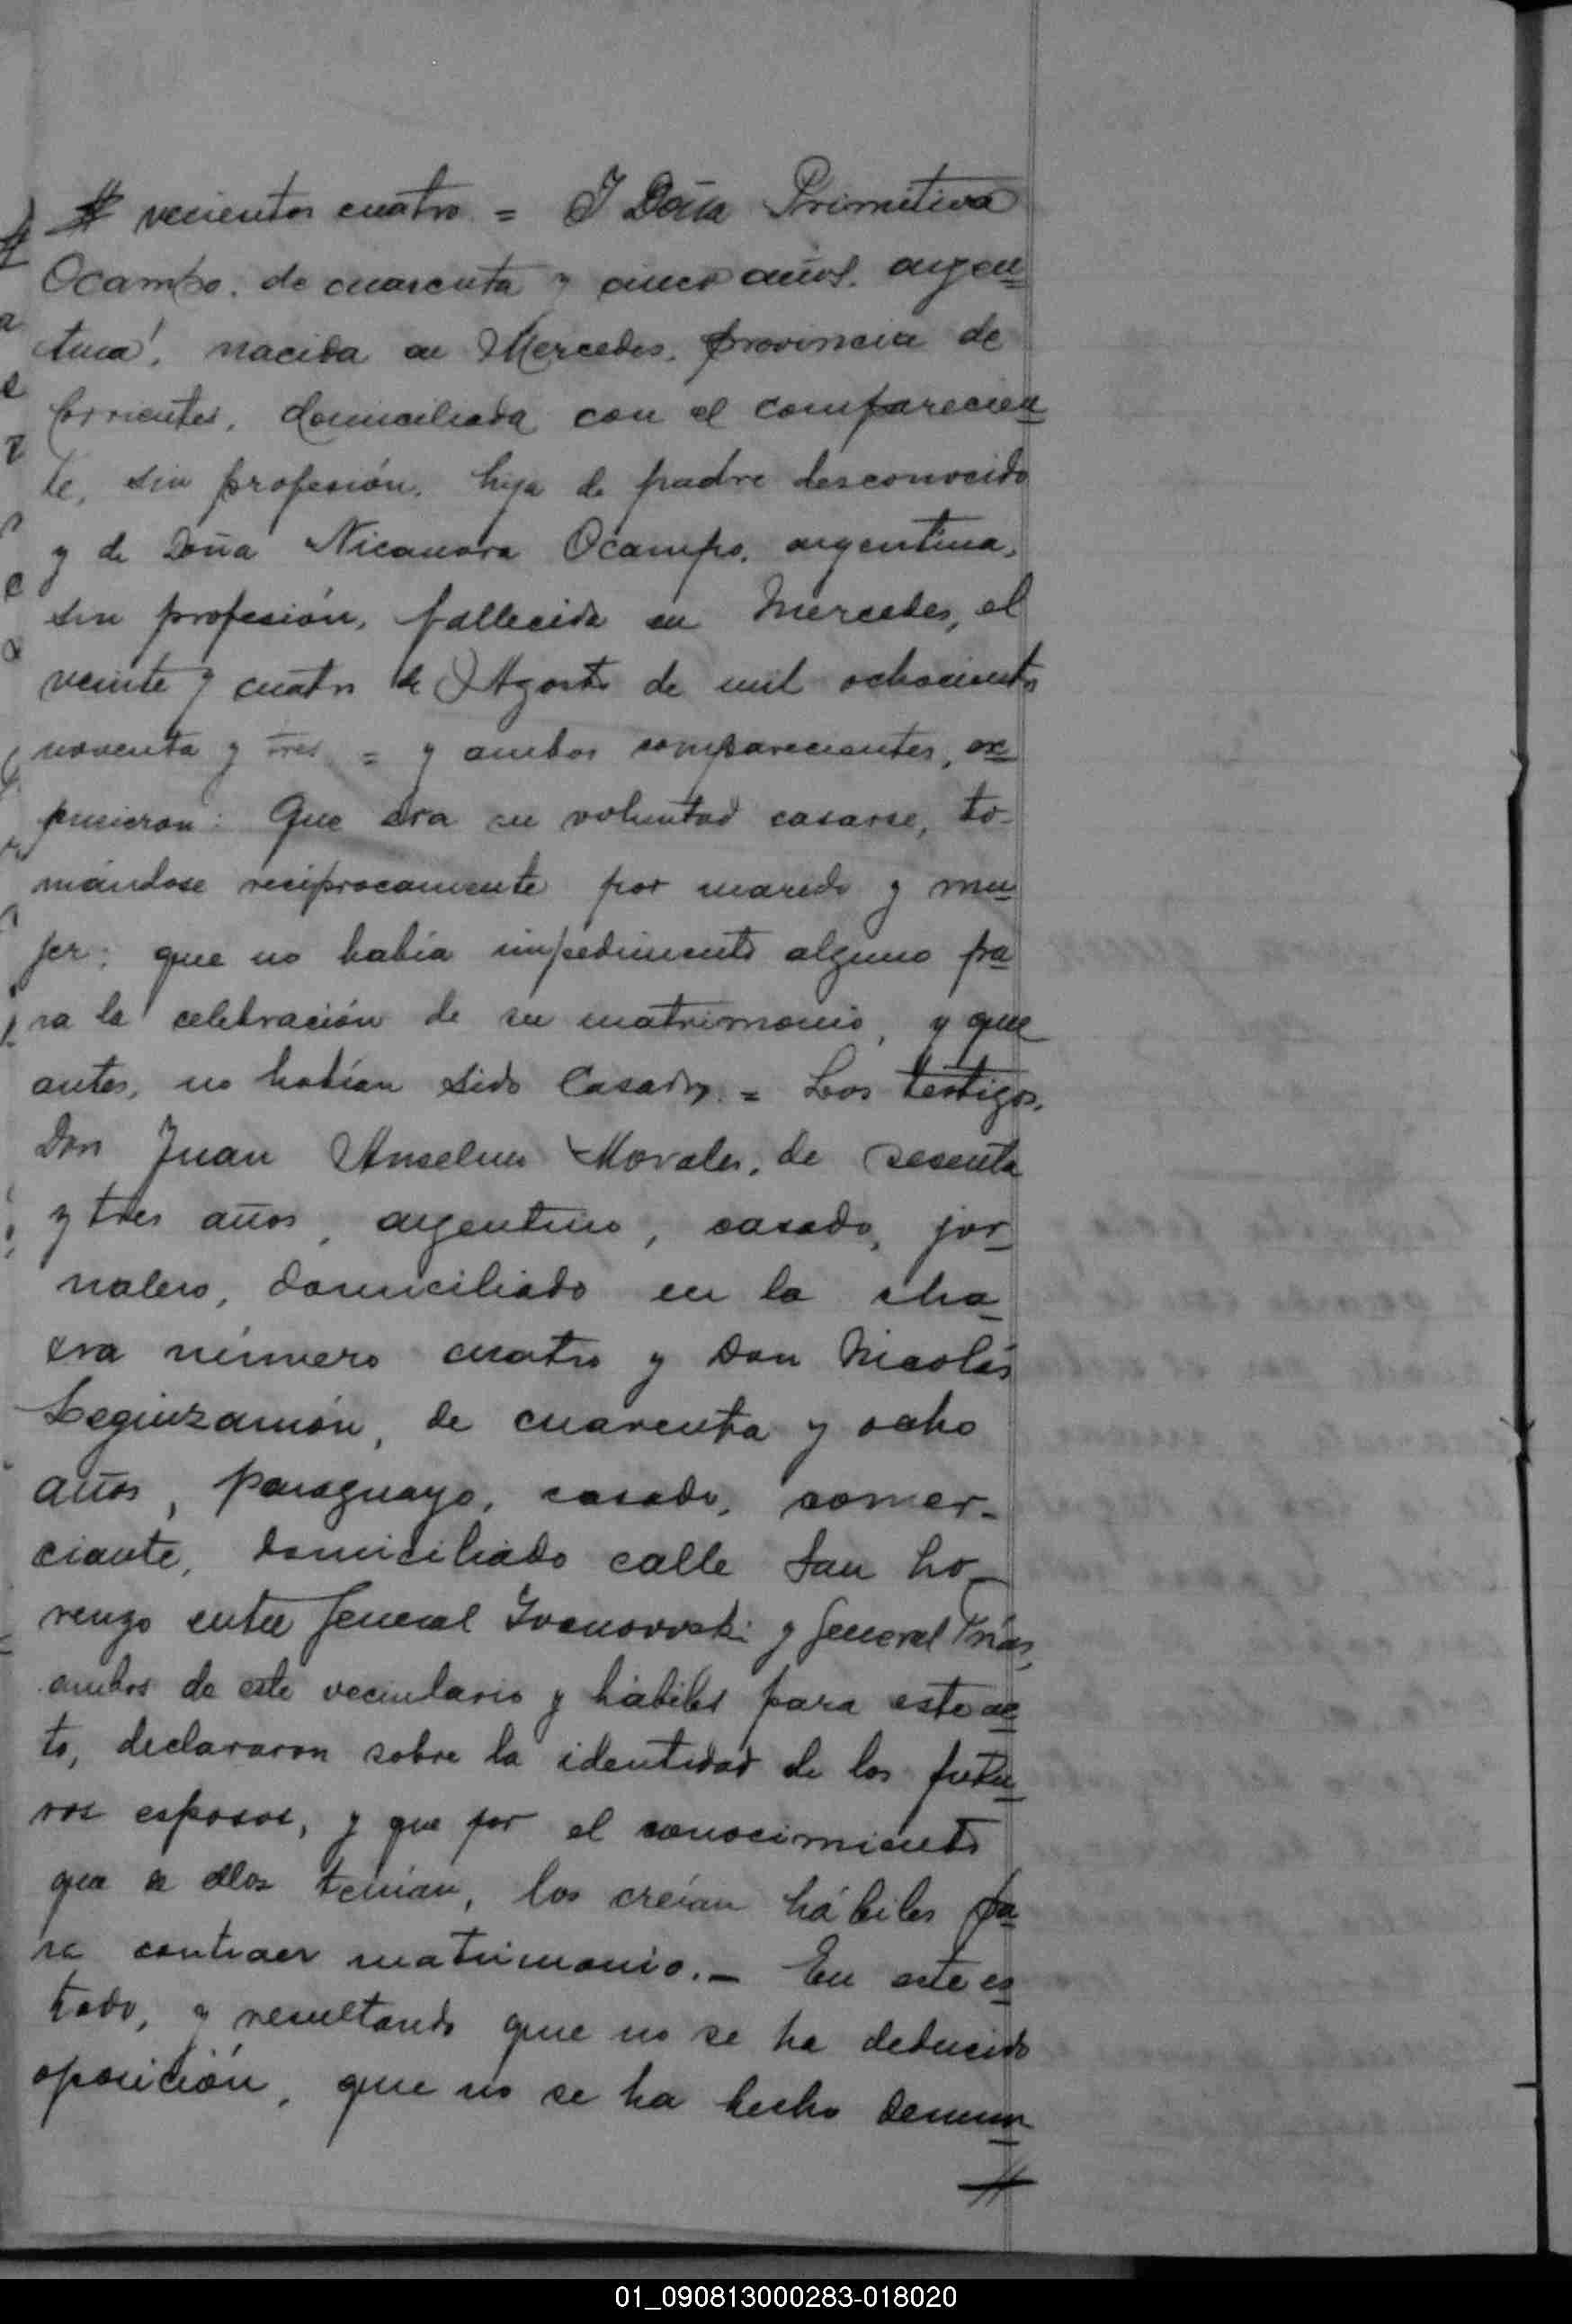 # vecientos cuatro = I Doña Primitiva
Ocampo, de cuarenta y cinco años, argen
tina, nacida en Mercedes, provincia de
Corrientes, domiciliada con el comparecien
te, sin profesión, hija de padre desconocido
y de Doña Nicanora Ocampo, argentina,
sin profesión, fallecida en Mercedes, el
veinte y cuatro de Agosto de mil ochocientos
noventa y tres = y ambos comparecientes, ex
pusieron: Que era su voluntad casarse, to-
mándose recíprocamente por marido y mu
jer; que no había impedimento alguno pa
ra la celebración de su matrimonio, y que
antes, no habían sido casados. = Los testigos,
Don Juan Anselmo Morales, de sesenta
y tres años, argentino, casado, jor
nalero, domiciliado en la cha
cra número cuatro y Don Nicolás
Leguizamón, de cuarenta y ocho
años, paraguayo, casado, comer-
ciante, domiciliado calle San Lo-
renzo entre General Ivanovski y General Frías,
ambos de este vecindario y hábiles para este ac
to, declararon sobre la identidad de los futu
ros esposos, y que por el conocimiento
que de ellos tenían, los creían hábiles pa
ra contraer matrimonio.- En este es
tado, y resultando que no se ha deducido
oposición, que no se ha hecho denun
#
01_090813000283-018020